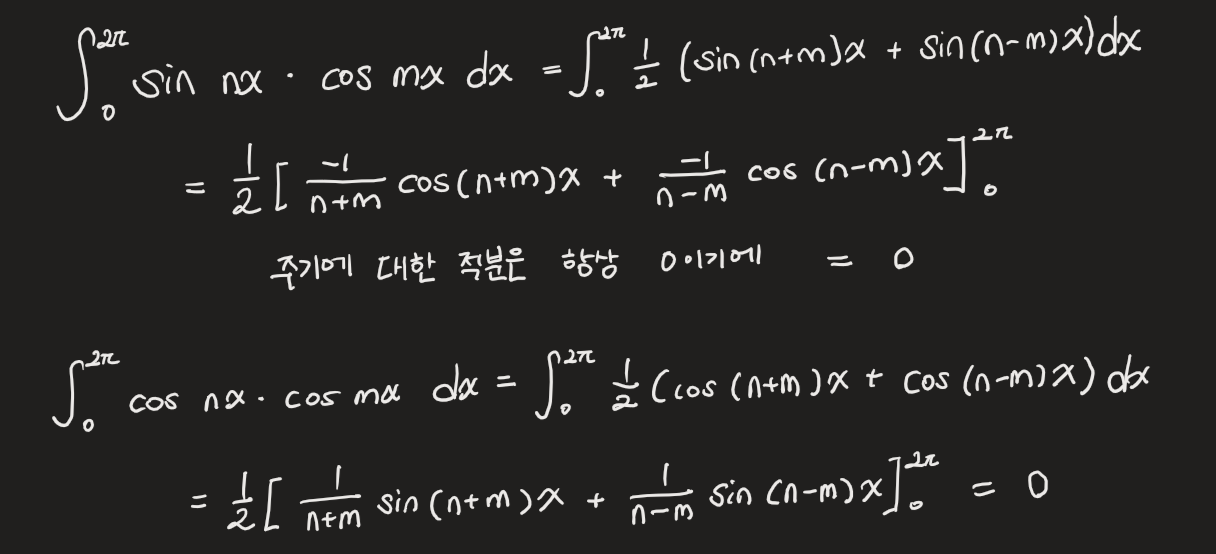 ∫₀^{2π} sin nx · cos mx dx = ∫₀^{2π} 1/2 (sin(n+m)x + sin(n-m)x)dx
= 1/2 [ -1/(n+m) cos(n+m)x + -1/(n-m) cos(n-m)x ]₀^{2π}
주기에 대한 적분은 항상 0이기에 = 0
∫₀^{2π} cos nx · cos mx dx = ∫₀^{2π} 1/2 (cos(n+m)x + cos(n-m)x) dx
= 1/2 [ 1/(n+m) sin(n+m)x + 1/(n-m) sin(n-m)x ]₀^{2π} = 0